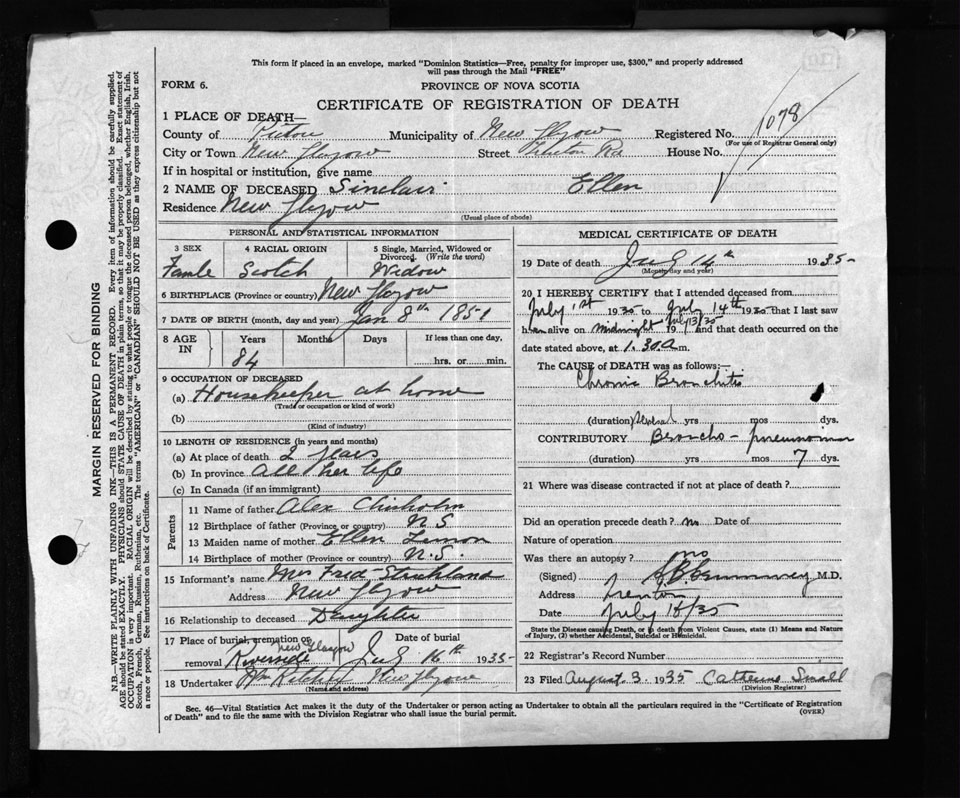 This form if placed in an envelope, marked "Dominion Statistics—Free, penalty for improper use, $300," and properly addressed
will pass through the Mail "FREE"
FORM 6.
PROVINCE OF NOVA SCOTIA
CERTIFICATE OF REGISTRATION OF DEATH
1078
1 PLACE OF DEATH—
County of Pictou Municipality of New Glasgow Registered No.
(For use of Registrar General only)
City or Town New Glasgow Street Trenton Rd House No.
If in hospital or institution, give name
2 NAME OF DECEASED Sinclair Ellen
Residence New Glasgow
(Usual place of abode)
PERSONAL AND STATISTICAL INFORMATION
3 SEX 4 RACIAL ORIGIN 5 Single, Married, Widowed or
Divorced. (Write the word)
Famle Scotch Widow
6 BIRTHPLACE (Province or country) New Glasgow
7 DATE OF BIRTH (month, day and year) Jan 8th 1851
8 AGE IN Years Months Days If less than one day,
84 hrs. or min.
9 OCCUPATION OF DECEASED
(a) Housekeeper at home
(Trade or occupation or kind of work)
(b)
(Kind of industry)
10 LENGTH OF RESIDENCE (in years and months)
(a) At place of death 2 years
(b) In province all her life
(c) In Canada (if an immigrant)
Parents
11 Name of father Alex Chisholm
12 Birthplace of father (Province or country) N S
13 Maiden name of mother Ellen
14 Birthplace of mother (Province or country) N.S.
15 Informant's name Mrs Fred Strickland
Address New Glasgow
16 Relationship to deceased Daughter
17 Place of burial, cremation or removal New Glasgow Date of burial
July 16th 1935
18 Undertaker New Glasgow
(Name and address)
MEDICAL CERTIFICATE OF DEATH
19 Date of death July 14th 1935
(Month, day and year)
20 I HEREBY CERTIFY that I attended deceased from
July 1st 1935 to July 14th 1935 that I last saw
h alive on midnight July 13/35 19 and that death occurred on the
date stated above, at 1.30 a.m.
The CAUSE OF DEATH was as follows:—
Chronic Bronchitis
(duration) Several yrs mos dys.
CONTRIBUTORY Broncho-pneumonia
(duration) yrs mos 7 dys.
21 Where was disease contracted if not at place of death?
Did an operation precede death? no Date of
Nature of operation
Was there an autopsy? no
(Signed) M.D.
Address Trenton
Date July 18/35
State the Disease causing Death, or in deaths from Violent Causes, state (1) Means and Nature
of Injury, (2) whether Accidental, Suicidal or Homicidal.
22 Registrar's Record Number
23 Filed August 3. 1935 Catherine Small
(Division Registrar)
Sec. 46—Vital Statistics Act makes it the duty of the Undertaker or person acting as Undertaker to obtain all the particulars required in the "Certificate of Registration
of Death" and to file the same with the Division Registrar who shall issue the burial permit.
(OVER)
MARGIN RESERVED FOR BINDING
N.B.—WRITE PLAINLY WITH UNFADING INK—THIS IS A PERMANENT RECORD. Every item of information should be carefully supplied.
AGE should be stated EXACTLY. PHYSICIANS should STATE CAUSE OF DEATH in plain terms, so that it may be properly classified. Exact statement of
OCCUPATION is very important. RACIAL ORIGIN will be described by stating to what people or tongue the deceased person belonged, whether English, Irish,
Scotch, French, German, Russian, Ruthenian, etc. The terms "AMERICAN" or "CANADIAN" SHOULD NOT BE USED as they express citizenship but not
a race or people. See instructions on back of Certificate.